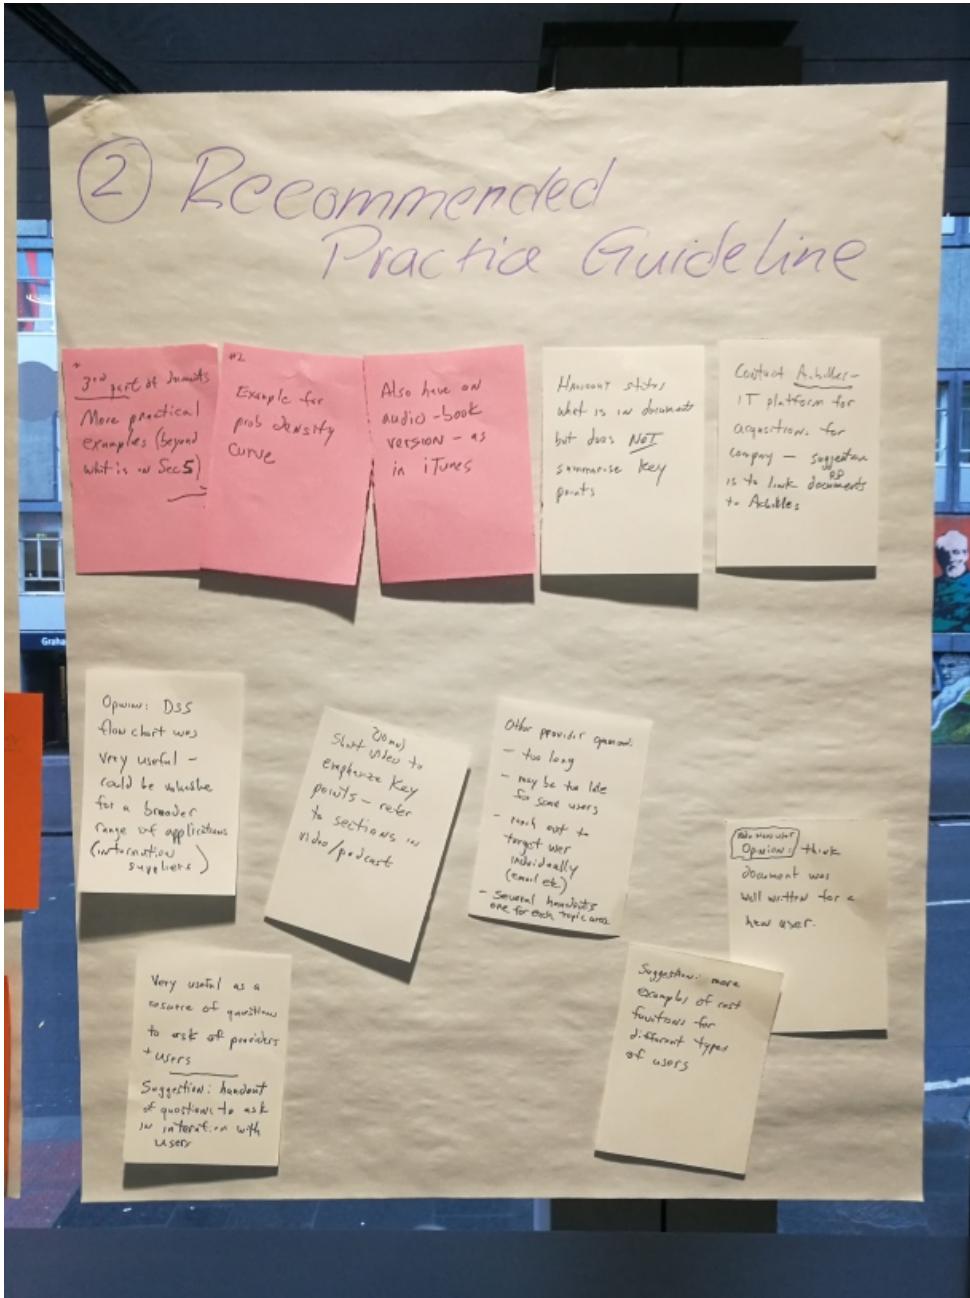 2 Recommended
Practice Guideline
3rd part of
More practical
examples (beyond
what is in Sec 5)
#2
Example for
prob density
curve
Also have an
audio-book
version - as
in iTunes
Handout states
what is in document
but does NOT
summarise key
points
Contact Achilles-
IT platform for
acquisitions for
company - suggestion
RP
is to link documents
to Achilles
Opinion: DSS
flow chart was
very useful -
could be valuable
for a broader
range of applications
(information
suppliers)
Short video to
emphasize key
points - refer
to sections in
video/podcast
Other provider
- too long
- may be too late
for some users
- reach out to
target user
individually
(email etc)
- Several handouts
one for each topic area
Opinion: think
document was
well written for a
new user.
Very useful as a
of questions
to ask of providers
+ users
Suggestion: handout
of questions to ask
in interation with
users
Suggestion: more
examples of cost
functions for
different types
of users
Graha